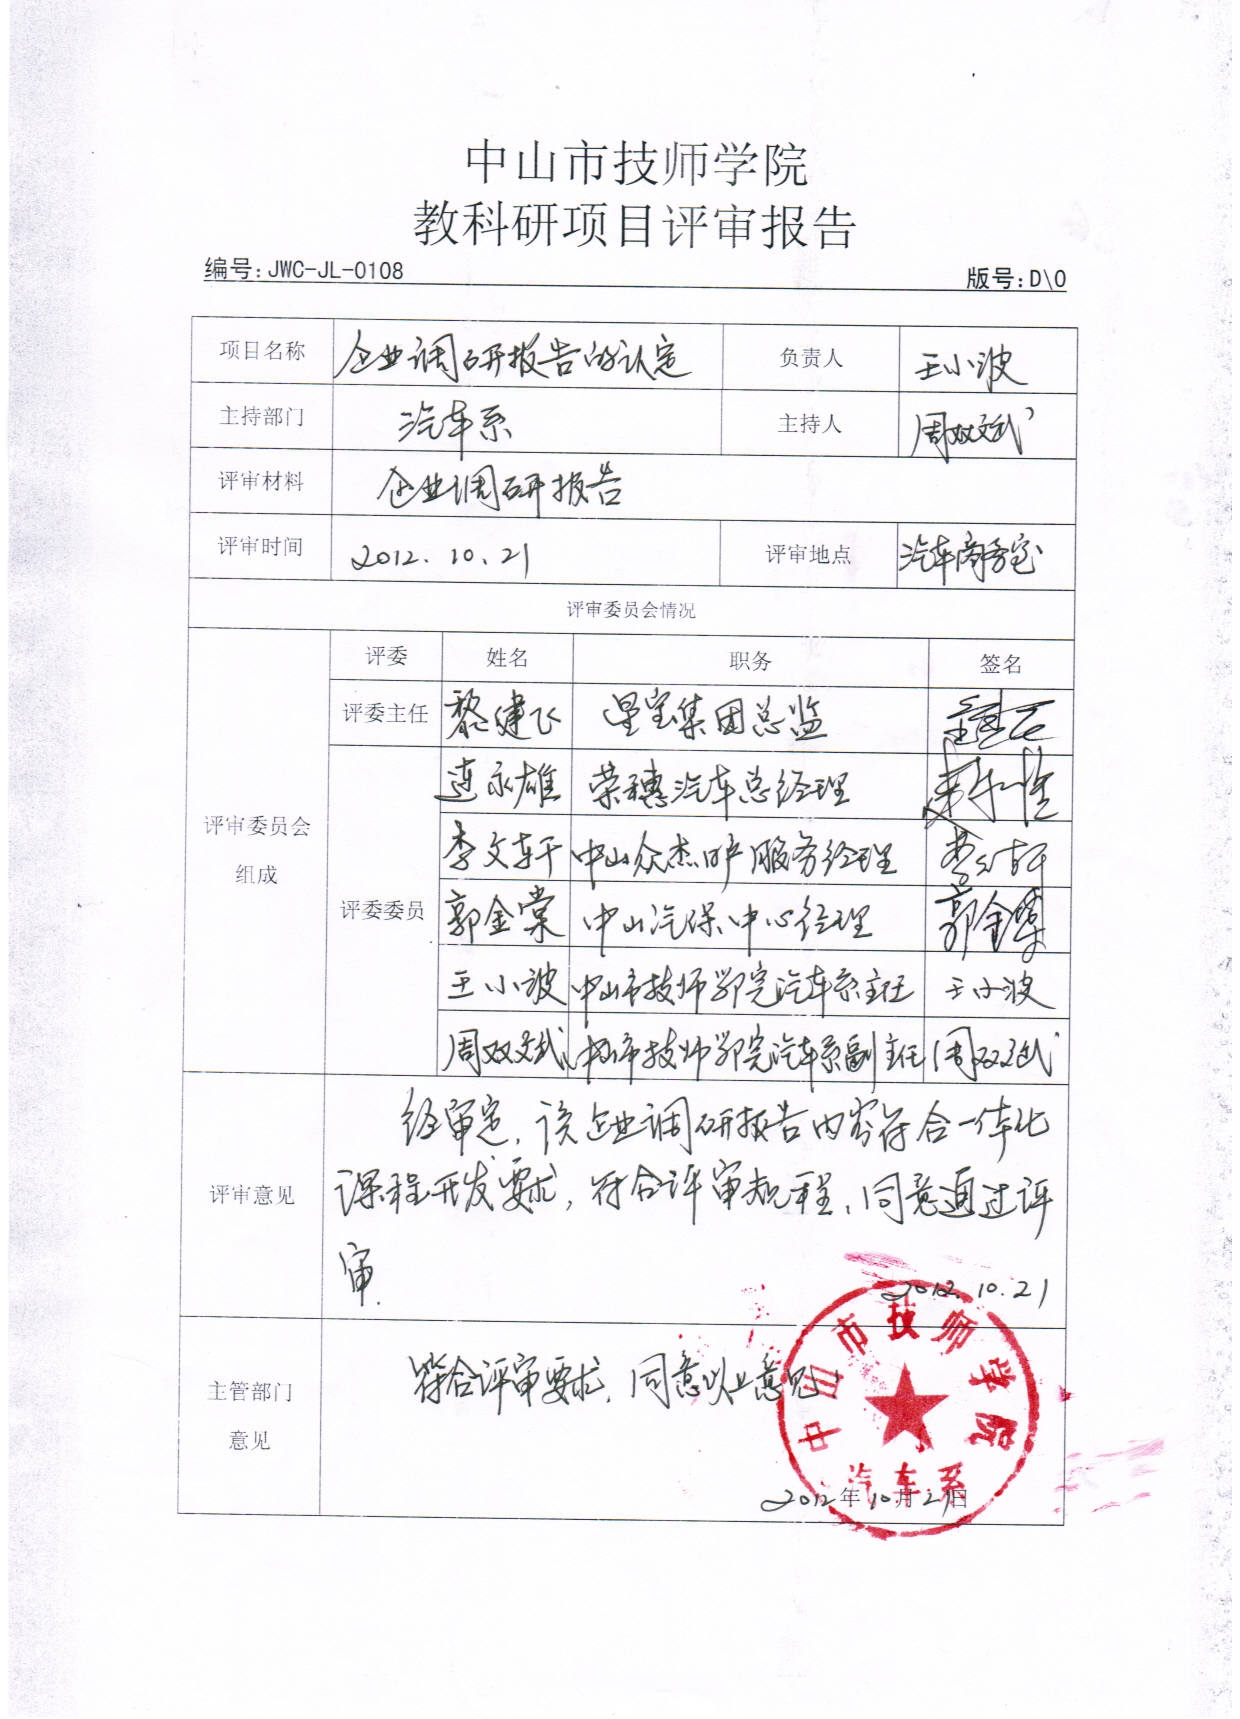 中山市技师学院
教科研项目评审报告
编号:JWC-JL-0108 版号:D\0
项目名称 企业调研报告的认定 负责人 王小波
主持部门 汽车系 主持人 周双斌
评审材料 企业调研报告
评审时间 2012.10.21 评审地点 汽车商务室
评审委员会情况
评审委员会组成
评委 姓名 职务 签名
评委主任 黎建飞 星宝集团总监
评委委员
连永雄 荣穗汽车总经理
李文轩 中山众杰 服务经理 李文轩
郭金棠 中山汽保中心经理 郭金棠
王小波 中山市技师学院汽车系主任 王小波
周双斌 中山市技师学院汽车系副主任 周双斌
评审意见
经审定,该企业调研报告内容符合一体化
课程开发要求,符合评审规程,同意通过评
审.
2012.10.21
主管部门
意见
符合评审要求,同意以上意见
中山市技师学院
汽车系
2012年10月21日